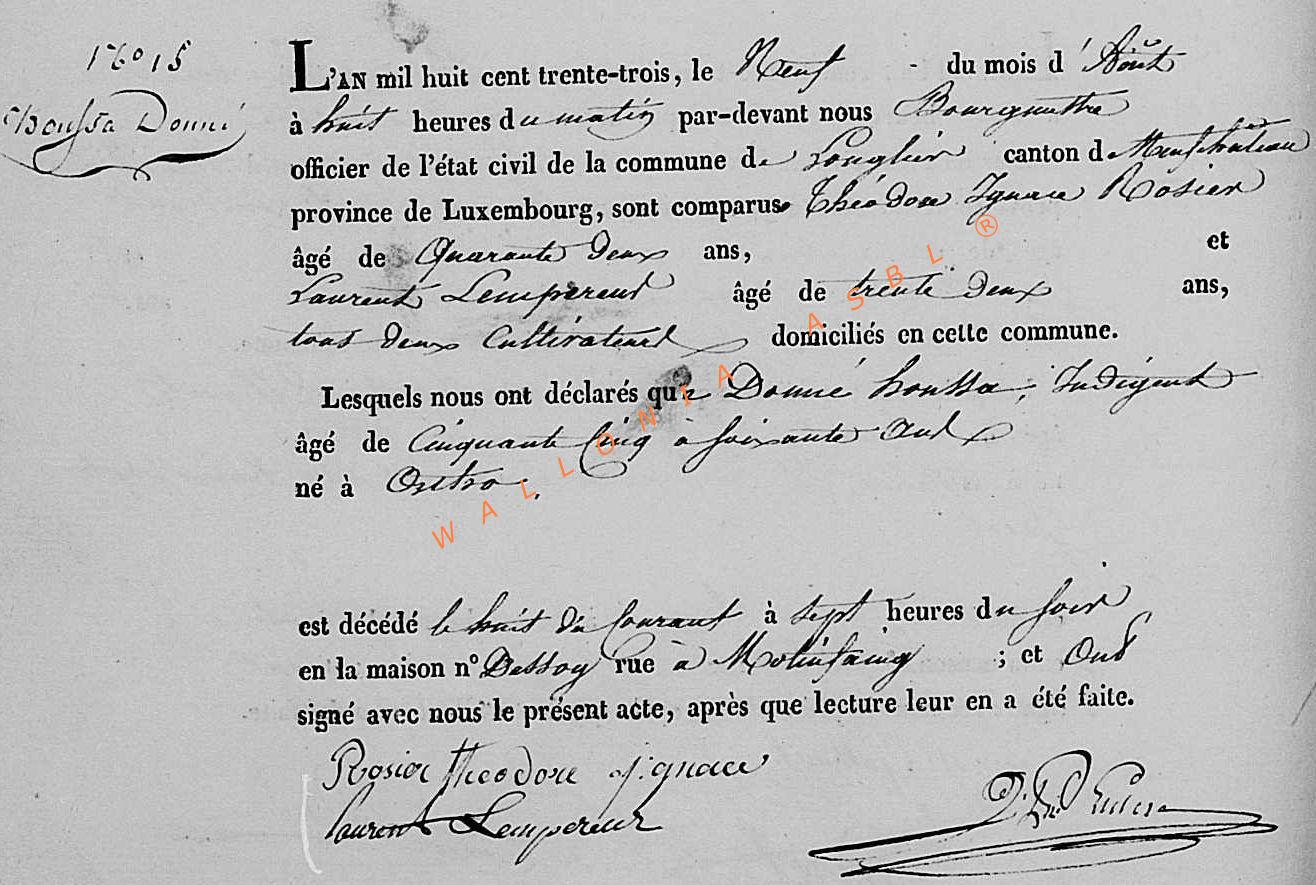 N° 15
Houssa Donné
L'AN mil huit cent trente-trois, le Neuf - du mois d'Août
à huit heures du matin par-devant nous Bourgmettre
officier de l'état civil de la commune de Longlier canton d Neufchâteau
province de Luxembourg, sont comparus Théodore Ignace Rosier
âgé de Quarante deux ans, et
Laurent Lempereur âgé de trente deux ans,
tous deux Cultivateurs domiciliés en cette commune.
Lesquels nous ont déclarés que Donné houssa, Indigent
âgé de Cinquante Cinq à soixante ans
né à Ortho.
est décédé le huit du Courant à sept heures du soir
en la maison n° Dessoy rue à Molinfaing ; et ont
signé avec nous le présent acte, après que lecture leur en a été faite.
Rosier theodore ignace
laurent Lempereur
WALLONIA ASBL ®